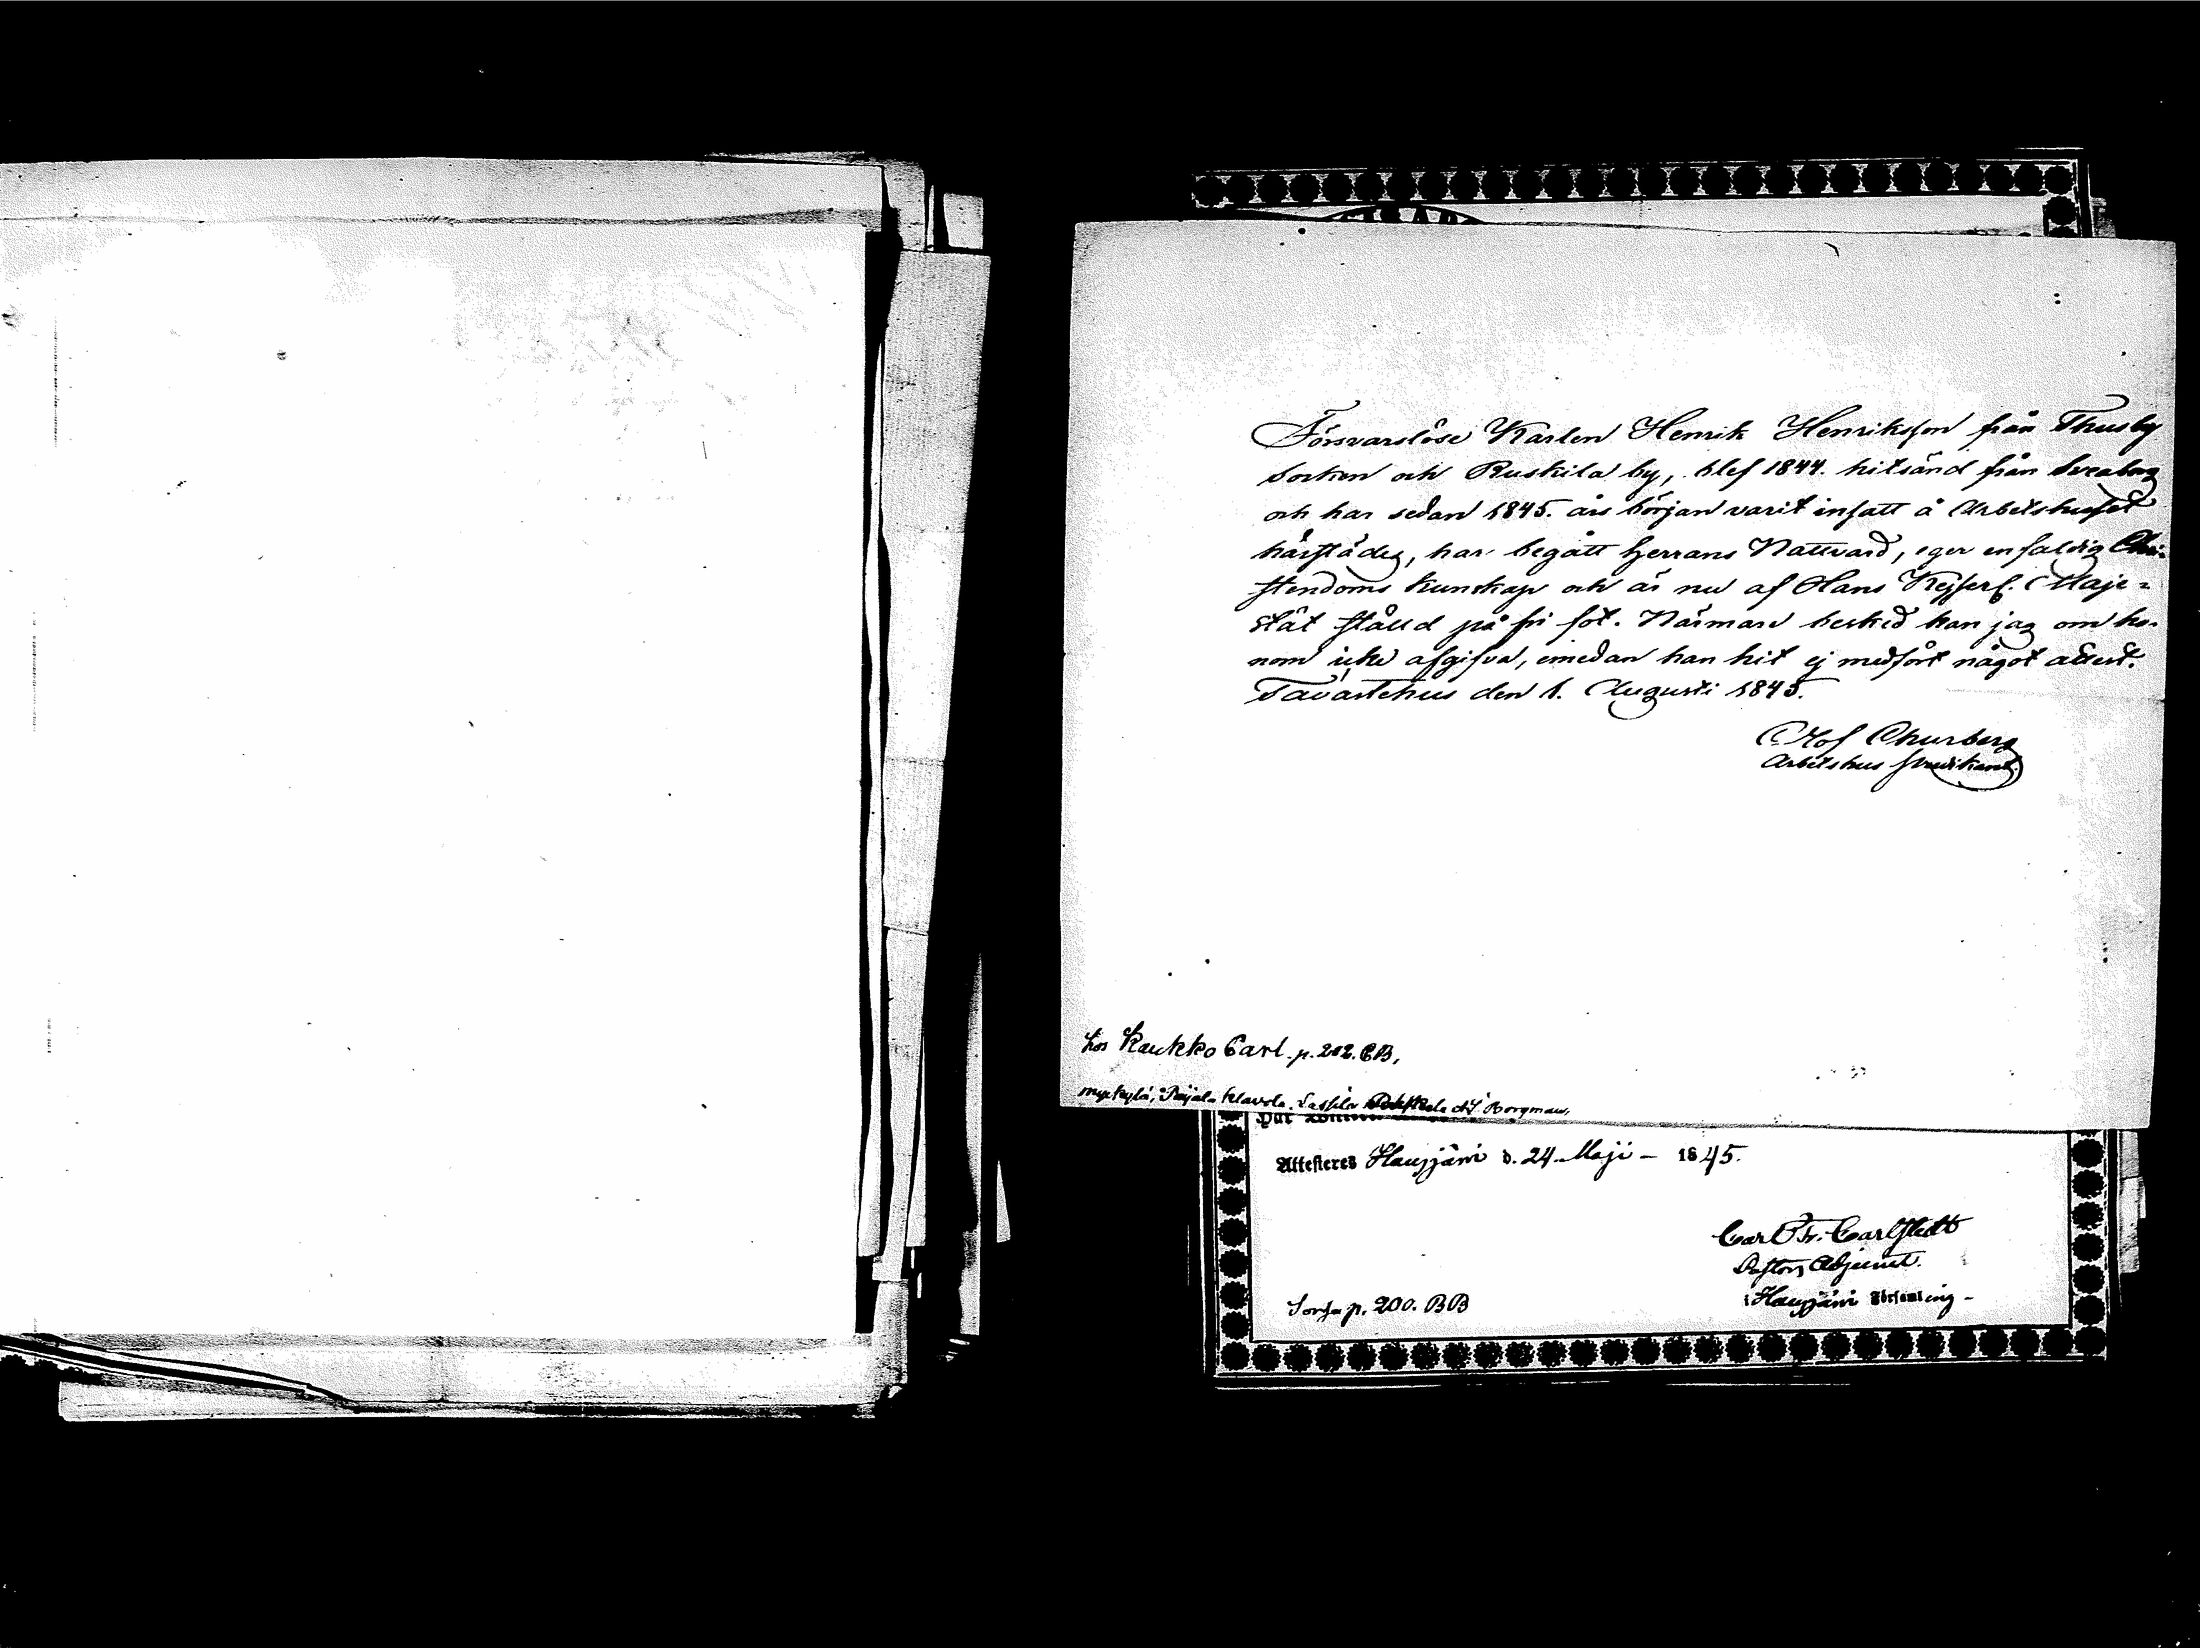 Försvarslöse Karlen Henrik Henriksson från Thusby
Socken och Ruskila by, blef 1844. hitsänd från Sveaborg
och har sedan 1845. års början varit insatt å Arbetshuset
härstädes, har begått Herrans Nattvard, eger enfaldig Chri-
stendoms kunskap och är nu af Hans Kejserl. Maje-
stät ställd på fri fot. Närmare besked kan jag om ho-
nom icke afgifva, emedan han hit ej medfört något attest.
Tavastehus den 1. Augusti 1845.
Olof Churberg
Arbetshus Predikant.
hos Kaukko Carl. p. 202. BB,
Attesteres Hausjärvi d. 24 Maji - 1845.
Carl Fr. Carlstedt
Pastors Adjunct.
i Hausjärvi Församling -
p. 200. BB